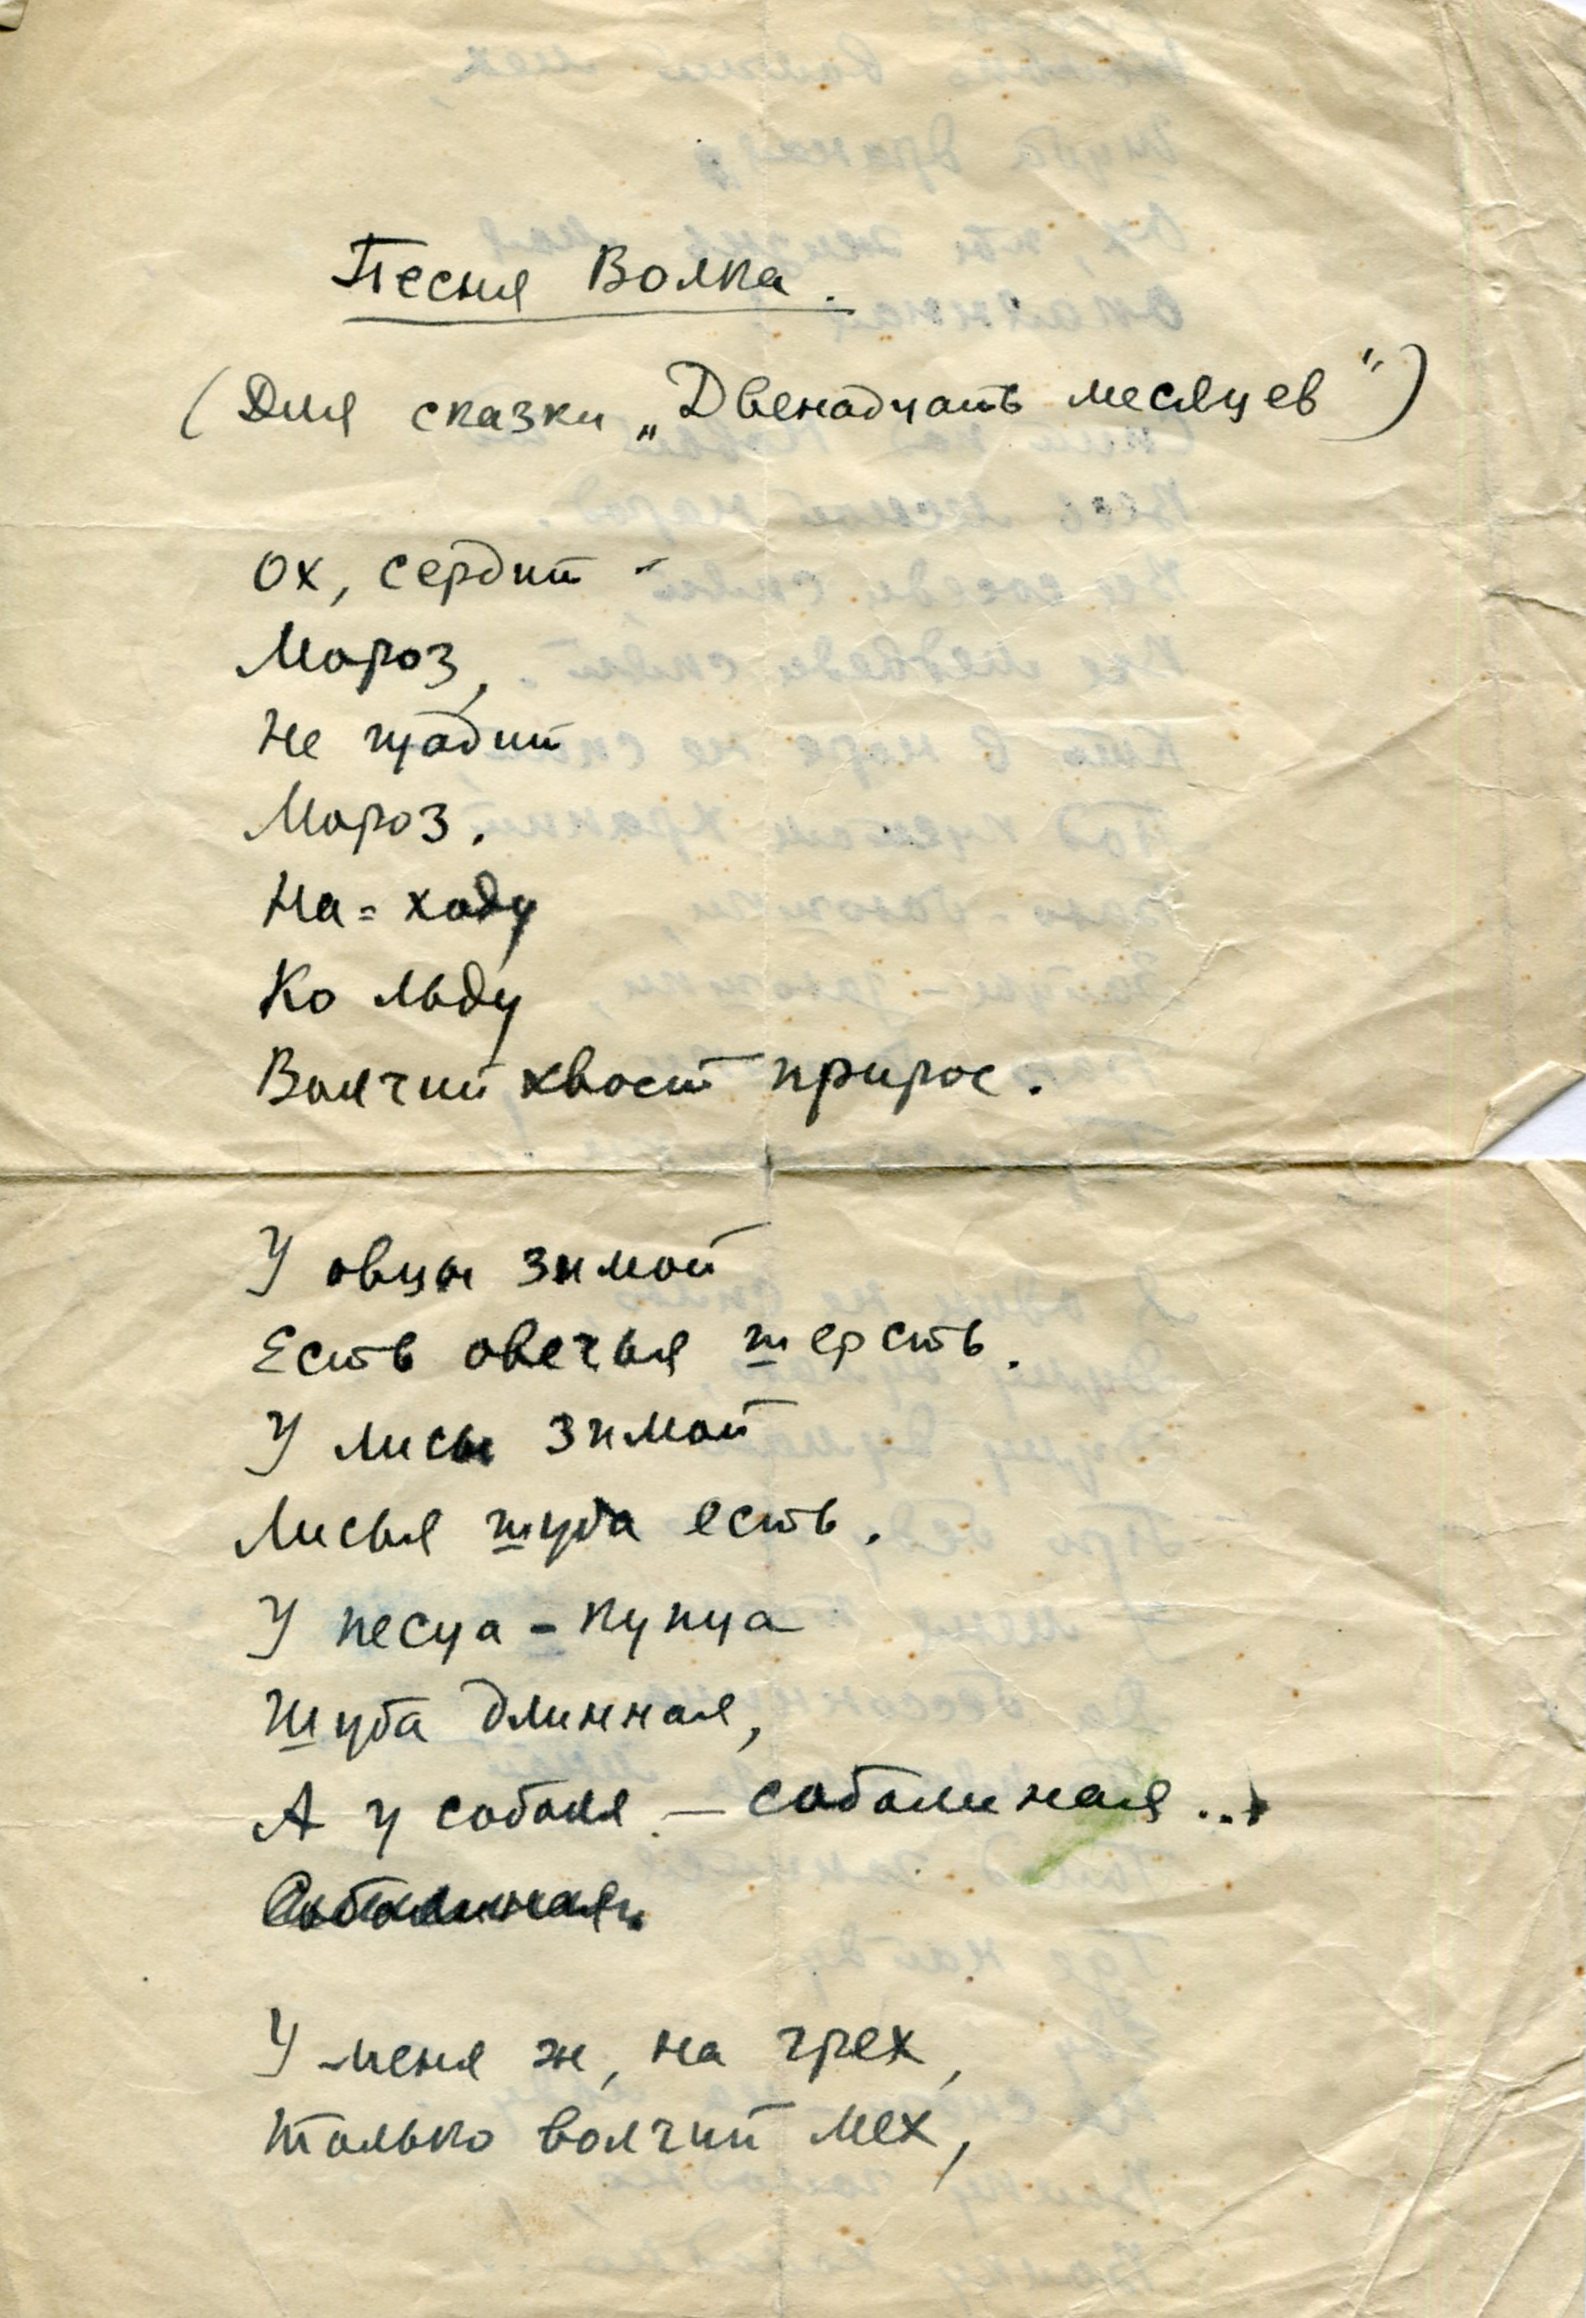 Песня Волка.
(Для сказки „Двенадцать месяцев")
Ох, сердит –
Мороз,
Не щадит
Мороз.
На-ходу
Ко льду
Волчий хвост прирос.
У овцы зимой
Есть овечья шерсть.
У лисы зимой
Лисья шуба есть.
У песца – купца
Шуба длинная,
А у соболя – соболиная...
Соболиная
У меня ж, на грех,
Только волчий мех,